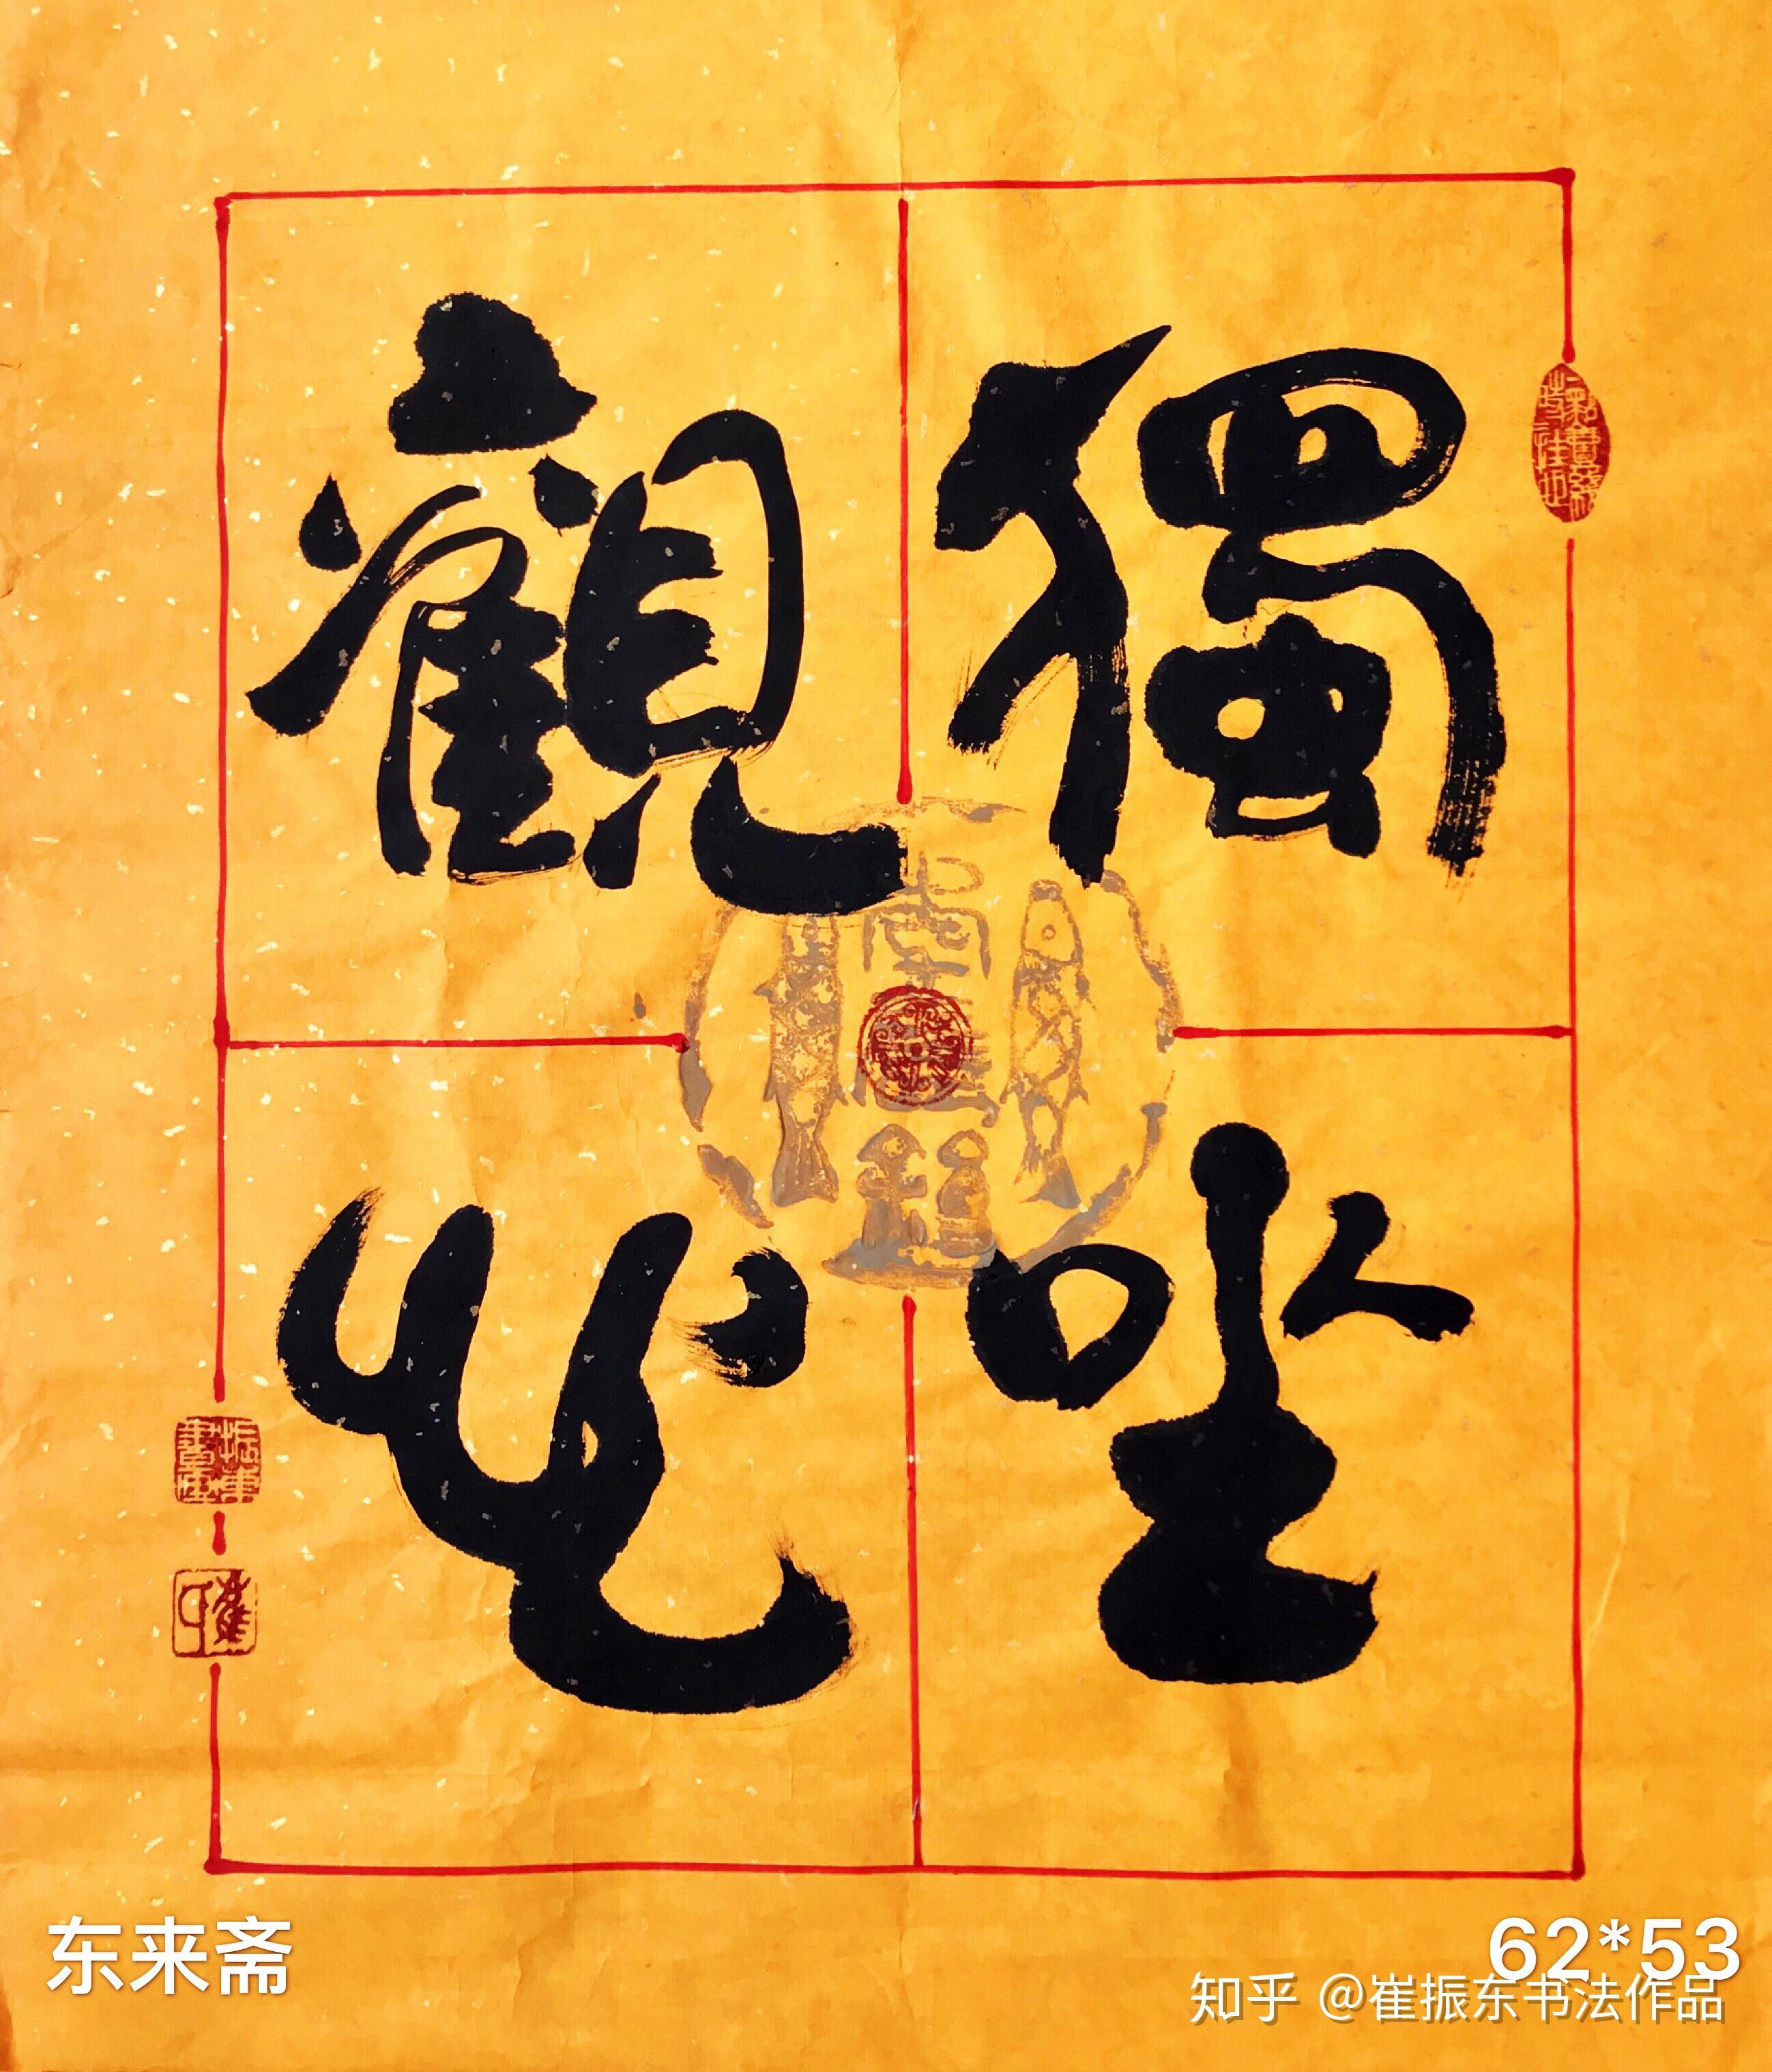 獨坐
觀心
东来斋
62*53
知乎 @崔振东书法作品